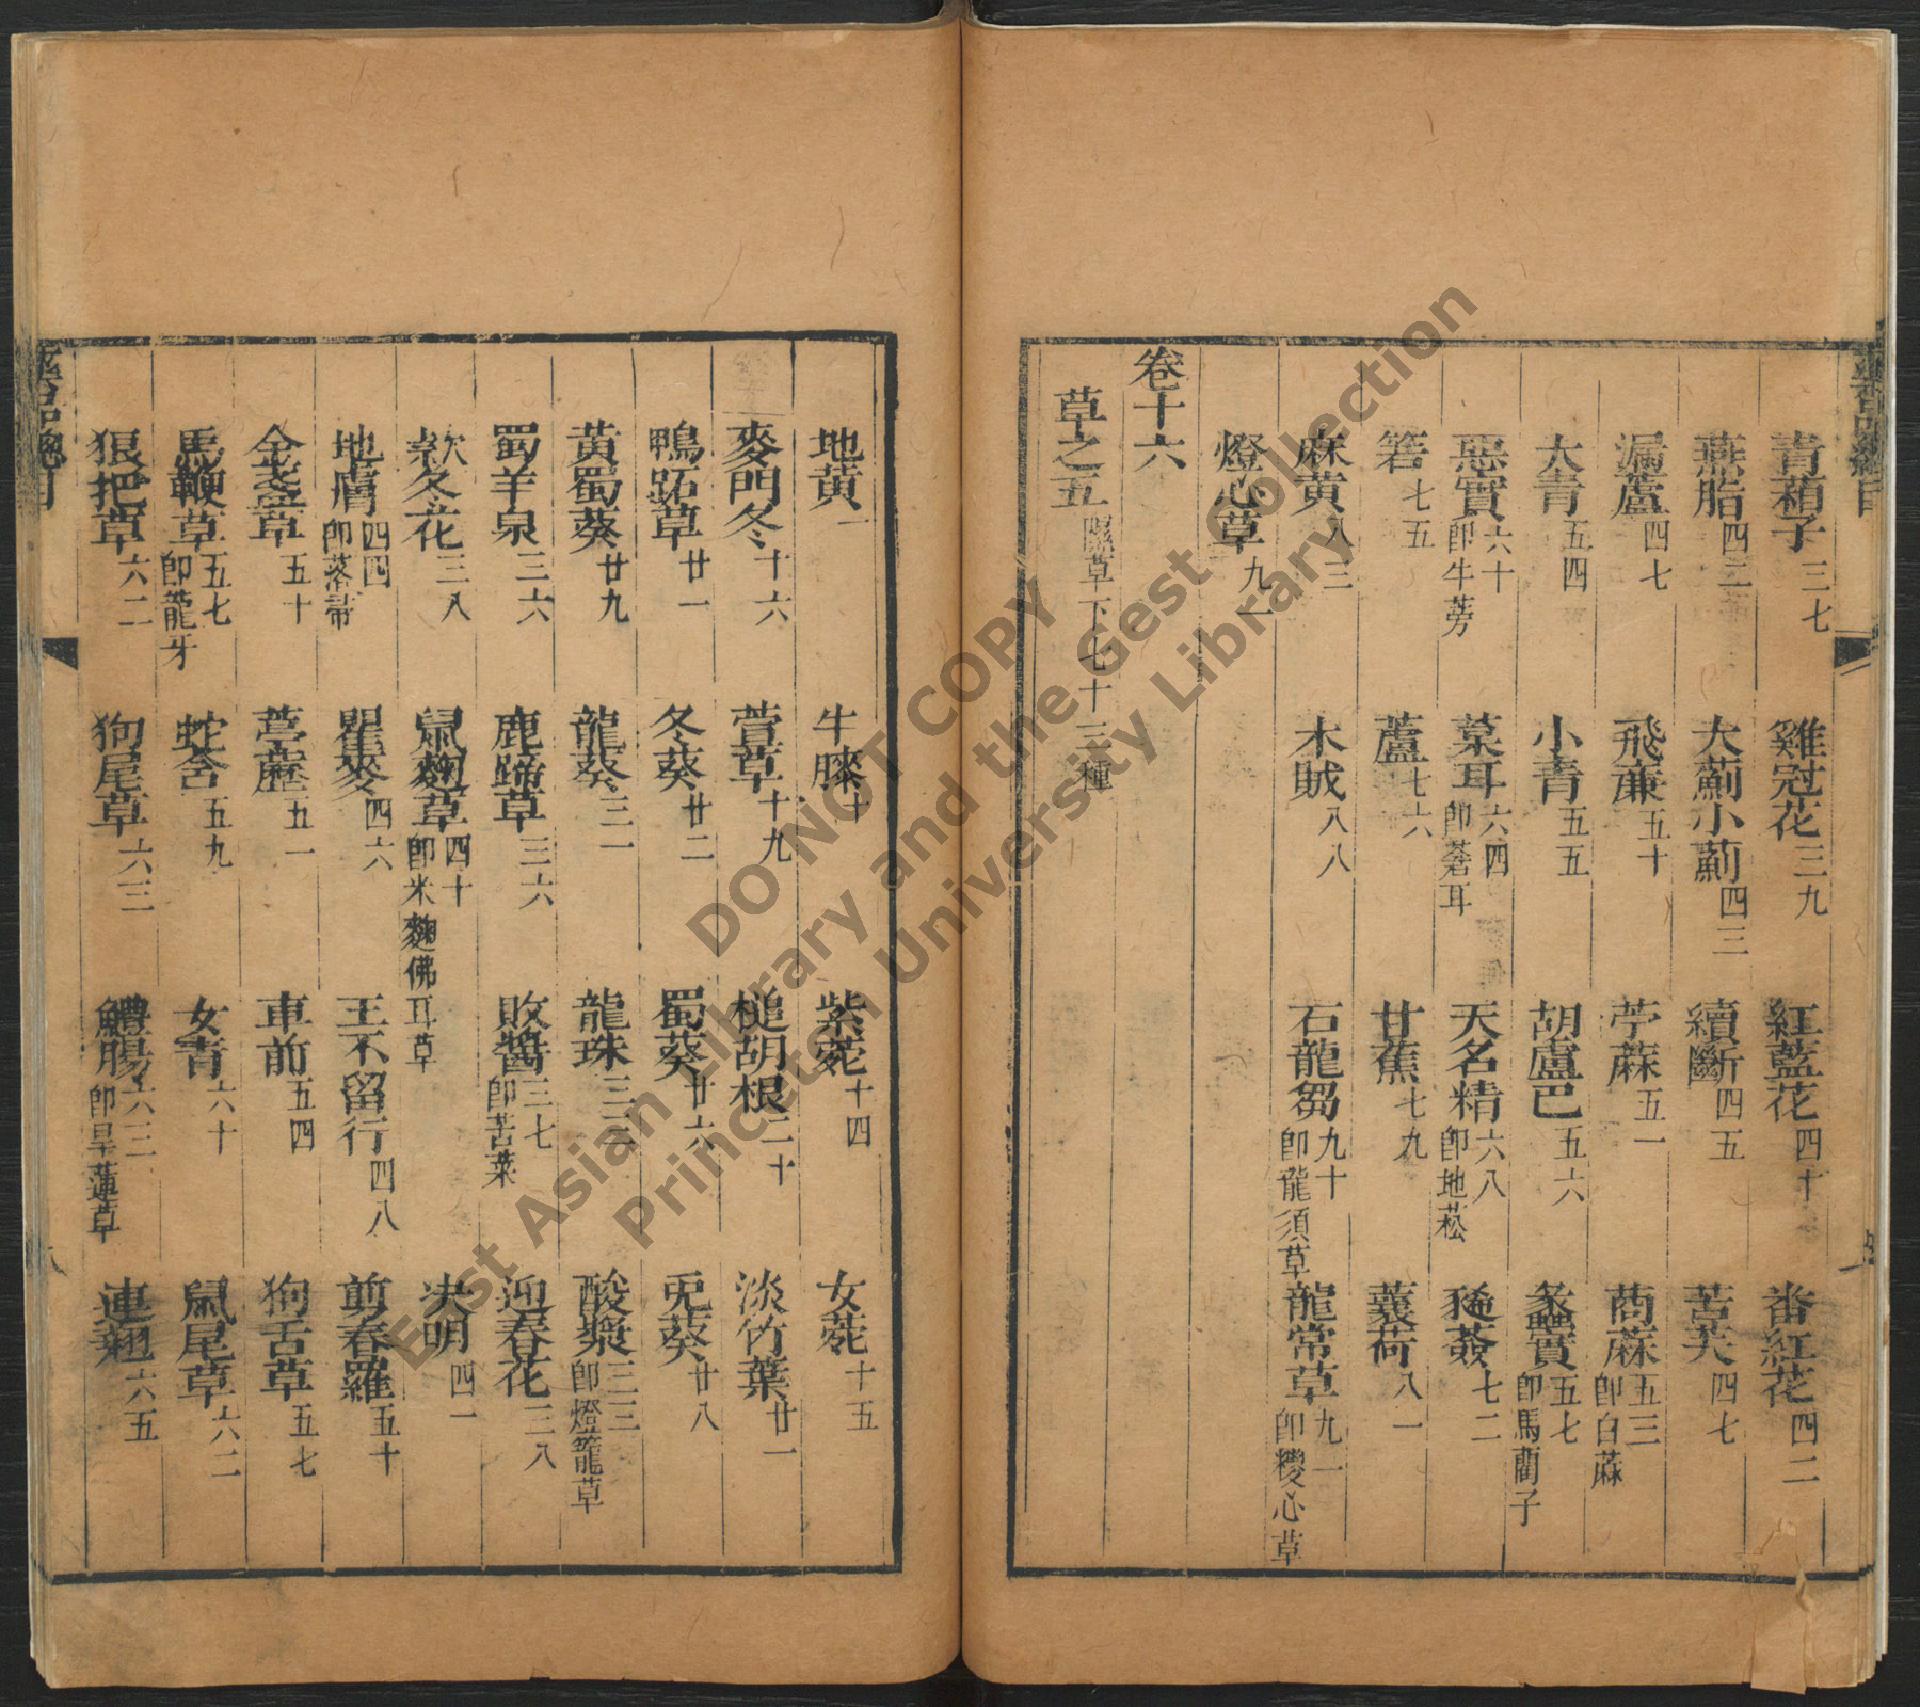 青葙子三七　雞冠花三九　紅藍花四十　番紅花四二
燕脂四二　大薊小薊四三　續斷四五　苦芙四七
漏蘆四七　飛廉五十　苧蔴五一　商蔴五三即白蔴
大青五四　小青五五　胡盧巴五六　蠡實五七即馬藺子
惡實六十即牛蒡　葈耳六四即蒼耳　天名精六八即地菘　豨薟七二
箬七五　蘆七六　甘蕉七九　蘘荷八一
麻黄八三　木賊八八　石龍芻九十即龍須草　龍常草九一即糉心草
燈心草九一
卷十六
草之五隰草下七十三種
地黄一　牛膝十　紫菀十四　女菀十五
麥門冬十六　萱草十九　槌胡根二十　淡竹葉廿一
鴨跖草廿一　冬葵廿二　蜀葵廿六　兎葵廿八
黄蜀葵廿九　龍葵三一　龍珠三三　酸漿三三即燈籠草
蜀羊泉三六　鹿蹄草三六　敗醬三七即苦菜　迎春花三八
欵冬花三八　鼠麴草四十即米麴佛耳草　决明四一
地膚四四即落帚　瞿麥四六　王不留行四八　剪春羅五十
金盞草五十　葶藶五一　車前五四　狗舌草五七
馬鞭草五七即龍牙　蛇含五九　女青六十　鼠尾草六二
狼把草六二　狗尾草六三　鱧腸六三即旱蓮草　連翹六五
藥品總目
DO NOT COPY
East Asian Library and the Gest Collection
Princeton University Library